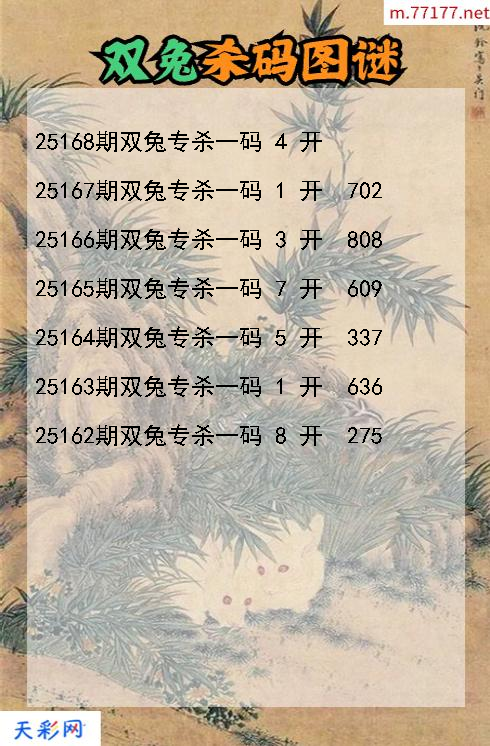 m.77177.net
双兔杀码图谜
25168期双兔专杀一码 4 开
25167期双兔专杀一码 1 开 702
25166期双兔专杀一码 3 开 808
25165期双兔专杀一码 7 开 609
25164期双兔专杀一码 5 开 337
25163期双兔专杀一码 1 开 636
25162期双兔专杀一码 8 开 275
天彩网